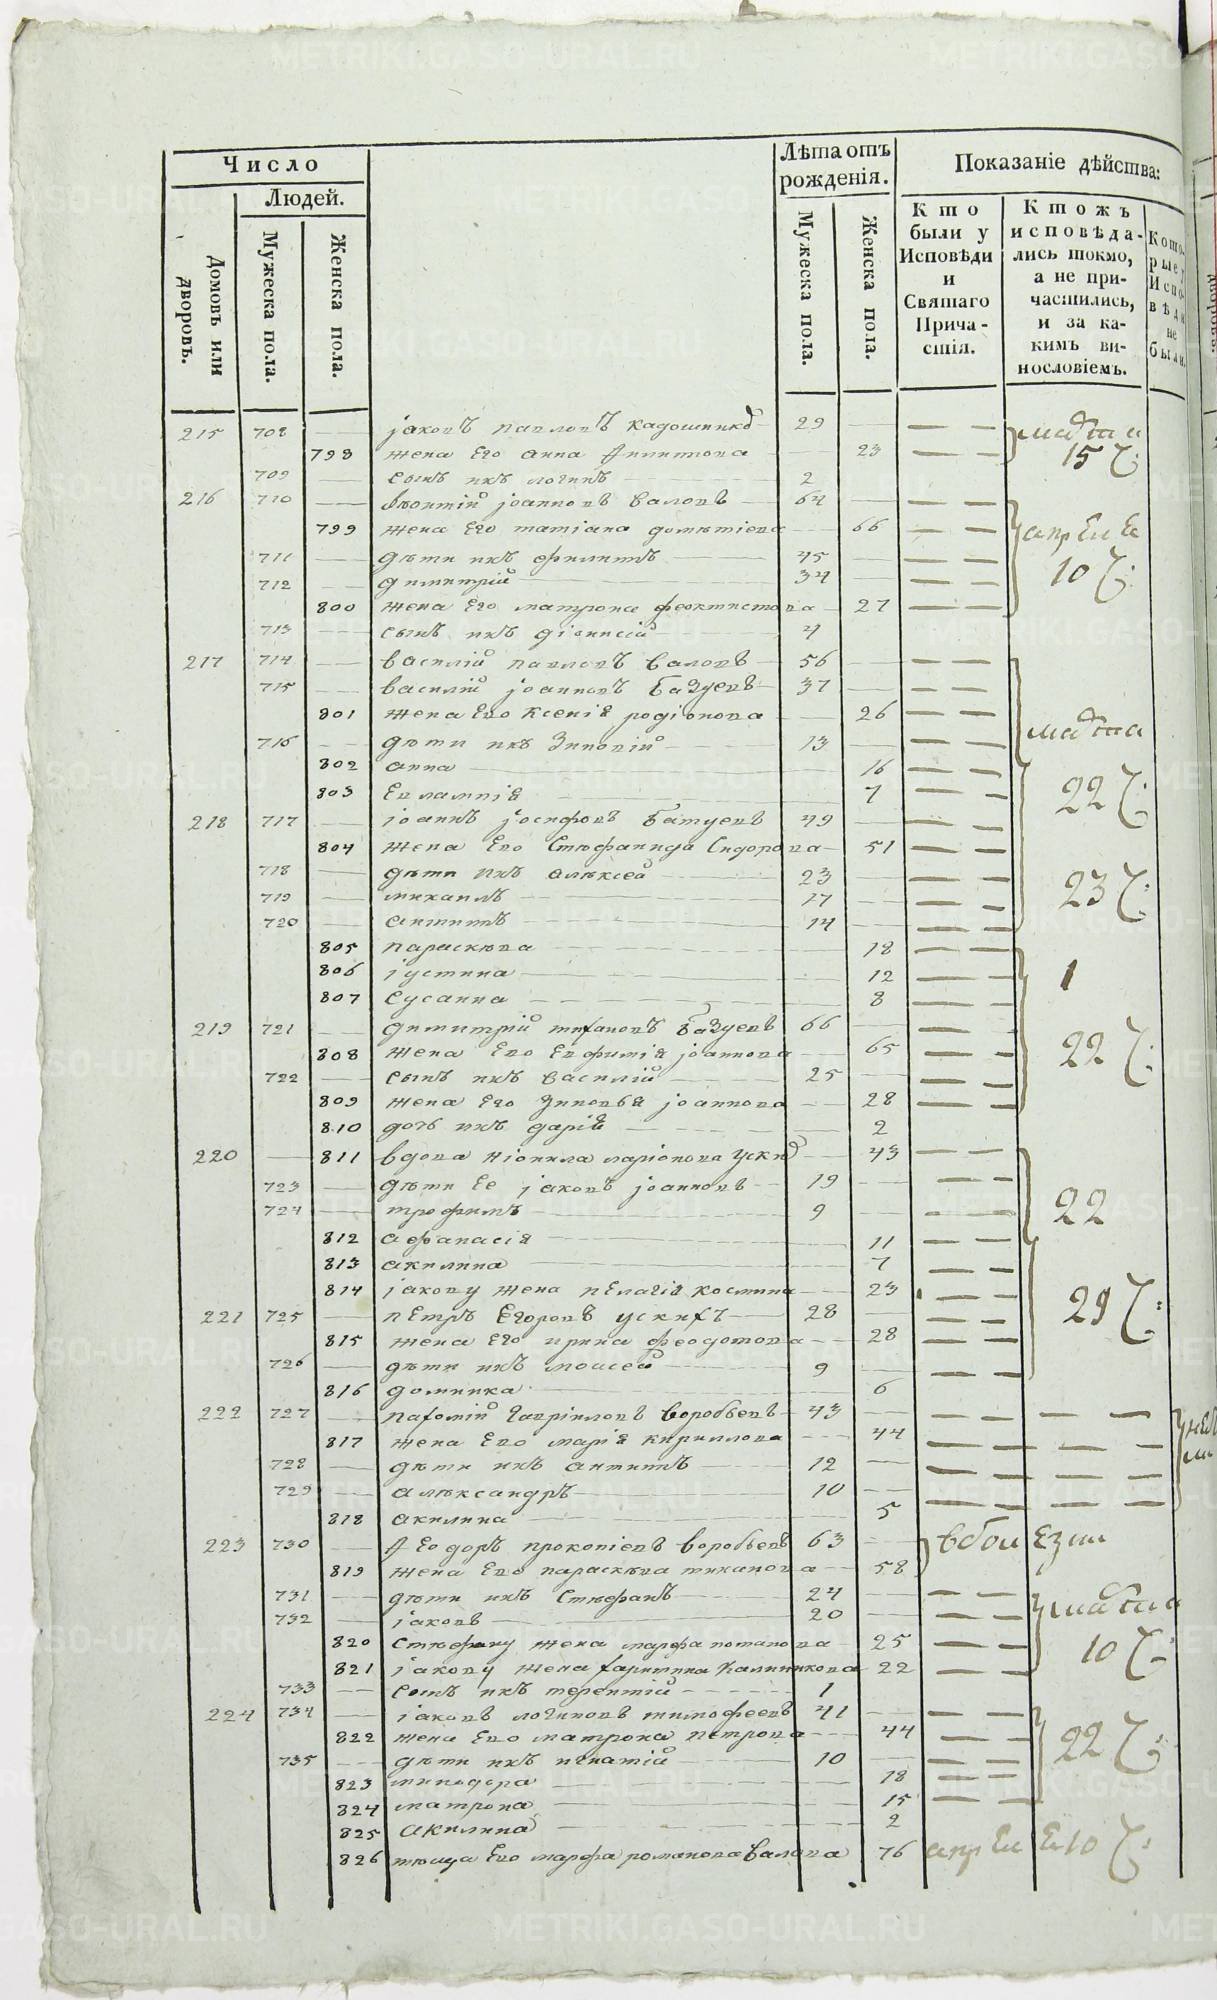 Число
Людей.
Домовъ или дворовъ.
Мужеска пола.
Женска пола.
Лѣта отъ рожденія.
Мужеска пола.
Женска пола.
Показаніе дѣйства:
Кто были у Исповѣди и Святаго Причастія.
Ктожъ исповѣдались токмо, а не причастились, и за какимъ винословіемъ.
Которые у Исповѣди не были.
215 708 — іаковъ павловъ 29
798 жена его анна 23
709 — сынъ ихъ логинъ 2
216 710 — леонтій іоанновъ валовъ 64
799 жена его татіана 66
711 — дѣти ихъ филиппъ 45
712 — димитрій 34
800 жена его матрона феоктистова 27
713 — сынъ ихъ діонисій 4
217 714 — василій павловъ валовъ 56
715 — василій іоанновъ базуевъ 37
801 жена его ксенія родіонова 26
716 — дѣти ихъ Зиновій 13
802 анна 16
803 евлампія 7
марта
22 Ч:
218 717 — іоаннъ іосифовъ батуевъ 49
804 жена его стефанида сидорова 51
718 — дѣти ихъ алексей 23
719 — михаилъ 17
720 — антипъ 14
23 Ч:
805 параскева 18
806 іустина 12
807 сусанна 8
1
219 721 — димитрій базуевъ 66
808 жена его евфимія іоаннова 65
722 — сынъ ихъ василій 25
809 жена его зиновья іоаннова 28
810 дочь ихъ дарія 2
22 Ч:
220 — 811 вдова неонила ларіонова 43
723 — дѣти ее іаковъ іоанновъ 19
724 — трофимъ 9
812 афанасія 11
813 акилина 7
814 іакову жена пелагія космина 23
22
221 725 — петръ егоровъ ускихъ 28
815 жена его ирина феодотова 28
726 — дѣти ихъ моисей 9
816 домника 6
29 Ч:
222 727 — пахомій гавріиловъ воробьевъ 43
817 жена его марія кириллова 44
728 — дѣти ихъ антипъ 12
729 — александръ 10
818 акилина 5
223 730 — феодоръ прокопіевъ воробьевъ 63
819 жена его параскева 58
731 — дѣти ихъ стефанъ 24
732 — іаковъ 20
820 стефану жена марфа потапова 25
821 іакову жена харитина калинникова 22
733 — сынъ ихъ терентій 1
марта
10 Ч:
224 734 — іаковъ логиновъ тимофеевъ 41
822 жена его матрона петрова 44
735 — дѣти ихъ игнатій 10
823 минодора 18
824 матрона 15
825 акилина 2
22 Ч:
826 теща его марфа романова валова 76 апреля 10 Ч: